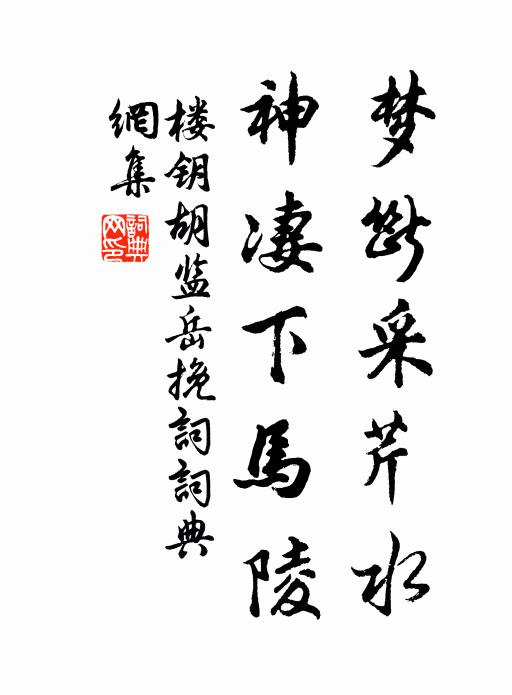 梦断采芹水
神凄下馬陵
楼钥胡监岳挽詞詞典
網集
詞典
网印